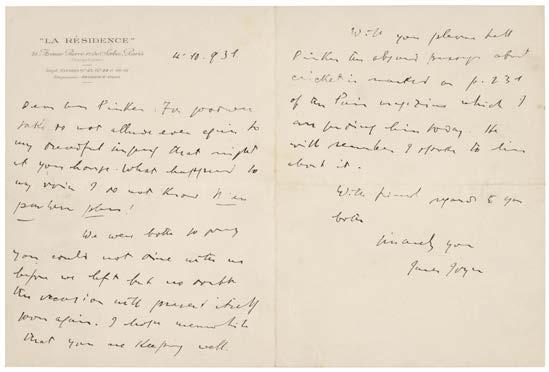 "LA RÉSIDENCE"
4.10.931
Dear Mrs Pinker: For goodness'
sake do not allude ever again to
my dreadful singing that night
at your house. What happened to
my voice I do not know. Il en
parlera plus!
We were both so sorry
you could not dine with us
before we left but no doubt
the occasion will present itself
soon again. I hope meanwhile
that you are keeping well.
Will you please tell
Pinker the absurd passage about
cricket is marked on p. 231
of the Paris magazine which I
am sending him today. He
will remember I spoke to him
about it.
With friend regards to you
both
sincerely yours
James Joyce